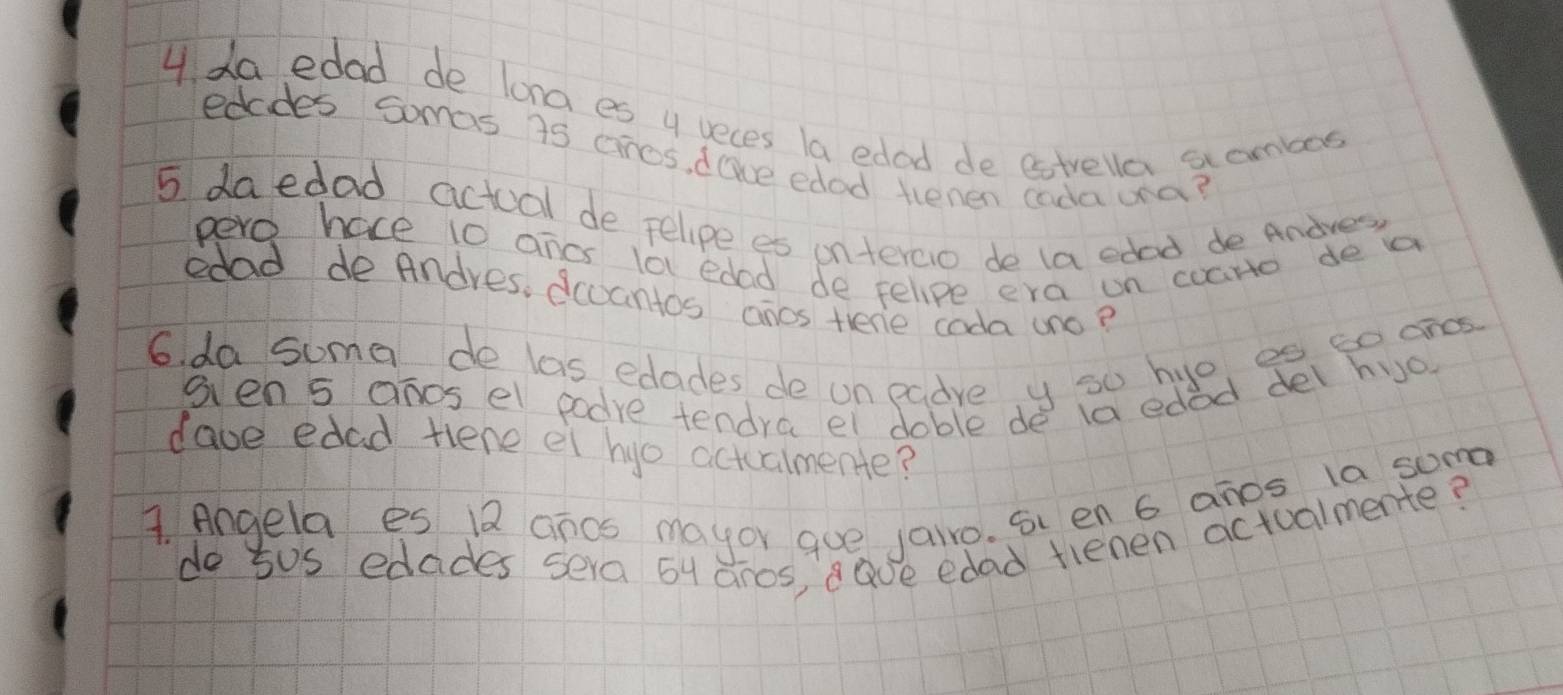 4. La edad de luna es 4 veces la edad de estrella si ambas
edades somas 75 años. ¿Que edad tienen cada una?
5. La edad actual de Felipe es un tercio de la edad de Andres,
pero hace 10 años la edad de Felipe era un cuarto de la
edad de Andres. ¿cuantos años tiene cada uno?
6. La suma de las edades de un padre y su hijo es 50 años
si en 5 años el padre tendra el doble de la edad del hijo,
¿que edad tiene el hijo actualmente?
7. Angela es 12 años mayor que jairo. Si en 6 años la suma
de sus edades sera 54 años, ¿Que edad tienen actualmente?